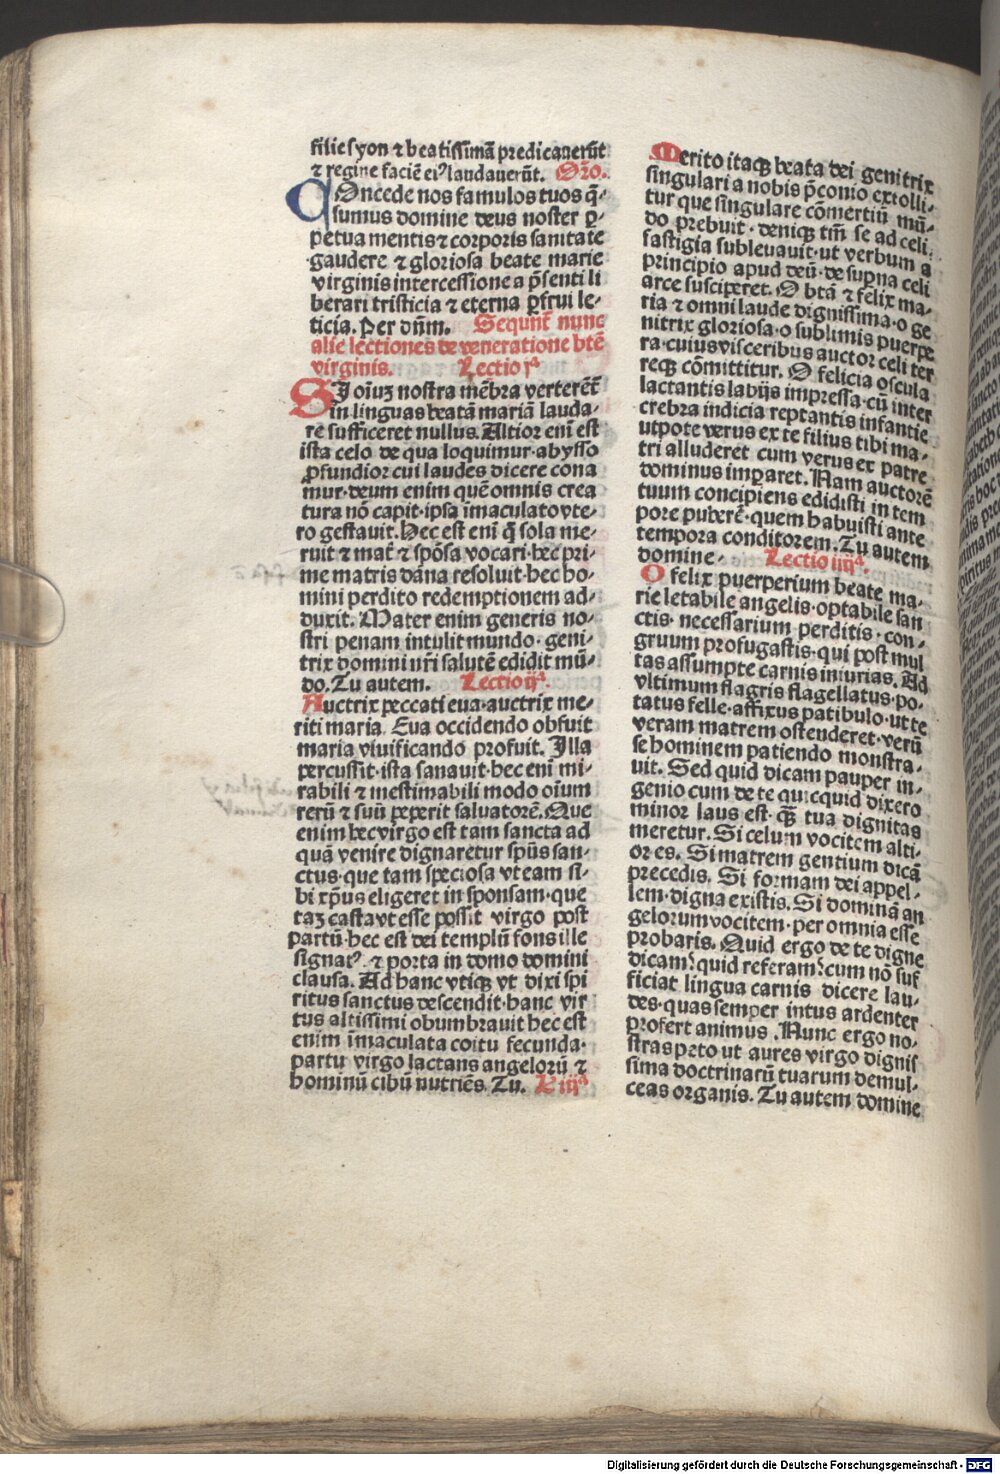 filie syon ⁊ beatissimā predicauerūt
⁊ regine faciē eiꝰ laudauerūt. Oro.
COncede nos famulos tuos q̄-
sumus domine deus noster ꝑ-
petua mentis ⁊ corporis sanitate
gaudere ⁊ gloriosa beate marie
virginis intercessione a p̄senti li
berari tristicia ⁊ eterna ꝑfrui le-
ticia. Per dn̄m. Sequūt̄ nunc
alie lectiones de veneratione btē
virginis. Lectio jª
SJ oīuꝫ nostra mēbra verterēt̄
in linguas beatā mariā lauda-
re sufficeret nullus. Altior enī est
ista celo de qua loquimur·abysso
ꝓfundior cui laudes dicere cona
mur·deum enim quē omnis crea
tura nō capit·ipsa īmaculato vte-
ro gestauit. Hec est enī q̄ sola me-
ruit ⁊ mat̄ ⁊ spōsa vocari·hec pri-
me matris dāna resoluit·hec ho-
mini perdito redemptionem ad-
duxit. Mater enim generis no-
stri penam intulit mundo· geni-
trix domini nr̄i salutē edidit mū-
do. Tu autem. Lectio ijª.
Auctrix peccati eua·auctrix me-
riti maria Eua occidendo obfuit
maria viuificando profuit. Illa
percussit·ista sanauit·hec enī mi-
rabili ⁊ inestimabili modo oīum
rerū ⁊ suū peperit saluatorē. Que
enim hec virgo est tam sancta ad
quā venire dignaretur spūs san-
ctus·que tam speciosa vt eam si-
bi xp̄us eligeret in sponsam·que
taꝫ casta vt esse possit virgo post
partū·hec est dei templū fons ille
signatꝰ. ⁊ porta in domo domini
clausa. Ad hanc vtiqꝫ vt dixi spi
ritus sanctus descendit·hanc vir
tus altissimi obumbrauit hec est
enim īmaculata coitu fecunda·
partu virgo lactans angelorū ⁊
hominū cibū nutriēs. Tu. L iijª
Merito itaqꝫ beata dei genitrix
singulari a nobis p̄conio extolli-
tur que singulare cōmertiū mū-
do prebuit· deniqꝫ tm̄ se ad celi
fastigia subleuauit·ut verbum a
principio apud deū·de sup̄na celi
arce susciperet. O btā ⁊ felix ma-
ria ⁊ omni laude dignissima·o ge
nitrix gloriosa·o sublimis puerpe
ra·cuius visceribus auctor celi ter
reqꝫ cōmittitur. O felicia oscula
lactantis labijs impressa·cū inter
crebra indicia reptantis infantie
utpote verus ex te filius tibi ma-
tri alluderet cum verus ex patre
dominus imꝑaret. Nam auctorē
tuum concipiens edidisti in tem
pore puberē·quem habuisti ante
tempora conditorem. Tu autem
domine· Lectio iiijª.
O felix puerperium beate ma-
rie letabile angelis·optabile san
ctis· necessarium perditis·con-
gruum profugastis·qui post mul
tas assumpte carnis iniurias. Ad
vltimum flagris flagellatus·po-
tatus felle·affixus patibulo·ut te
veram matrem ostenderet·verū
se hominem patiendo monstra-
uit. Sed quid dicam pauper in-
genio cum de te quicquid dixero
minor laus est·qꝫ̄ tua dignitas
meretur. Si celum vocitem alti-
or es. Si matrem gentium dicā
precedis. Si formam dei appel-
lem·digna existis. Si dominā an
gelorum vocitem·per omnia esse
probaris. Quid ergo de te digne
dicam?quid referam?cum nō suf
ficiat lingua carnis dicere lau-
des·quas semper intus ardenter
profert animus. Nunc ergo no-
stras p̄to ut aures virgo dignis
sima doctrinarū tuarum demul-
ceas organis. Tu autem domine
Digitalisierung gefördert durch die Deutsche Forschungsgemeinschaft - DFG